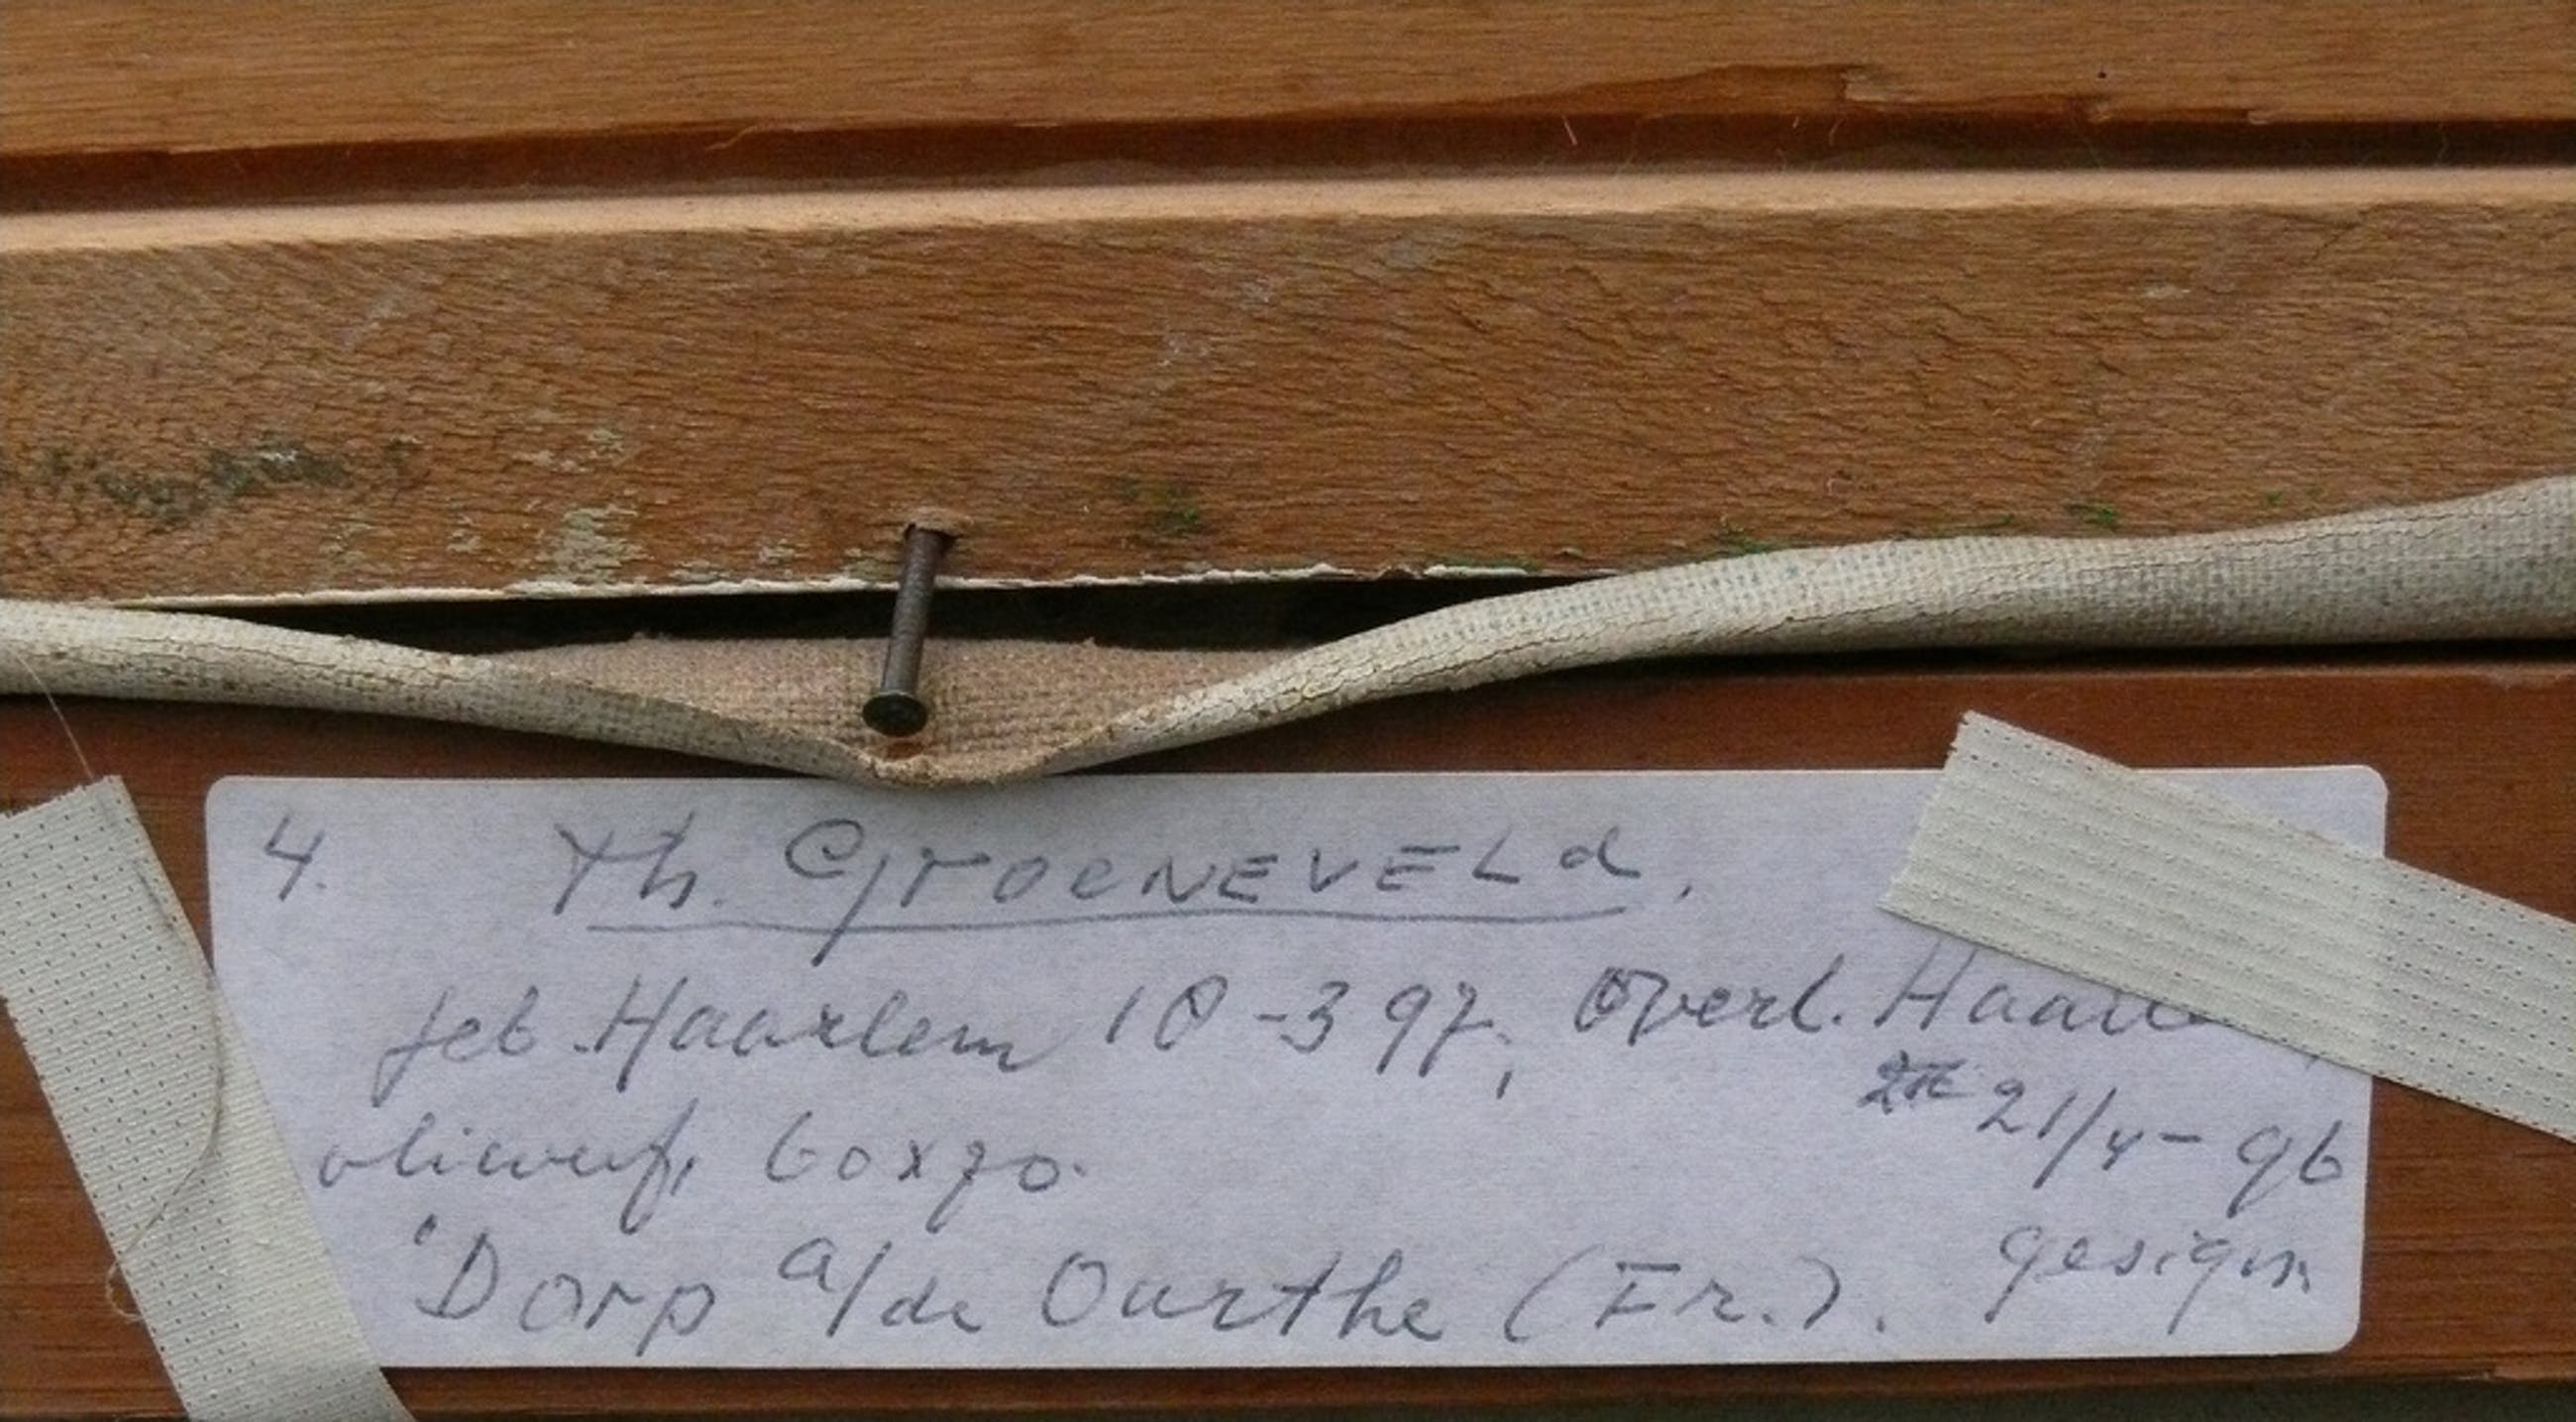 4. Th. GROENEVELd.
geb. Haarlem 10-3 97, Overl. Haarle
21/4 - 96
olieverf, 60x70.
gesign
'Dorp a/de Ourthe (Fr.).